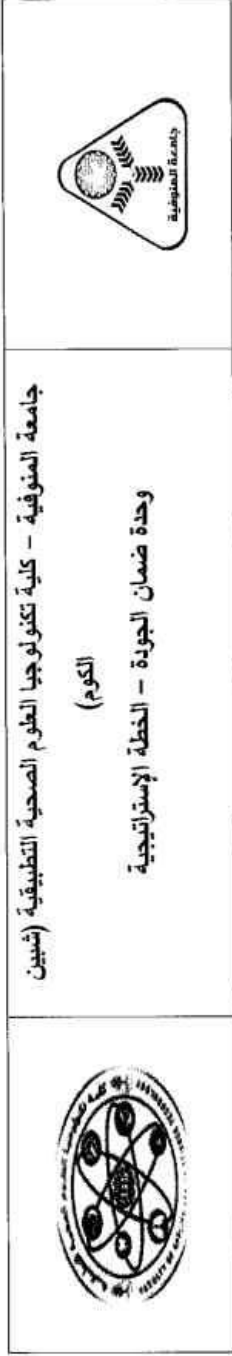 جامعة المنوفية
جامعة المنوفية – كلية تكنولوجيا العلوم الصحية التطبيقية (شبين
الكوم)
وحدة ضمان الجودة – الخطة الإستراتيجية
FACULTY OF